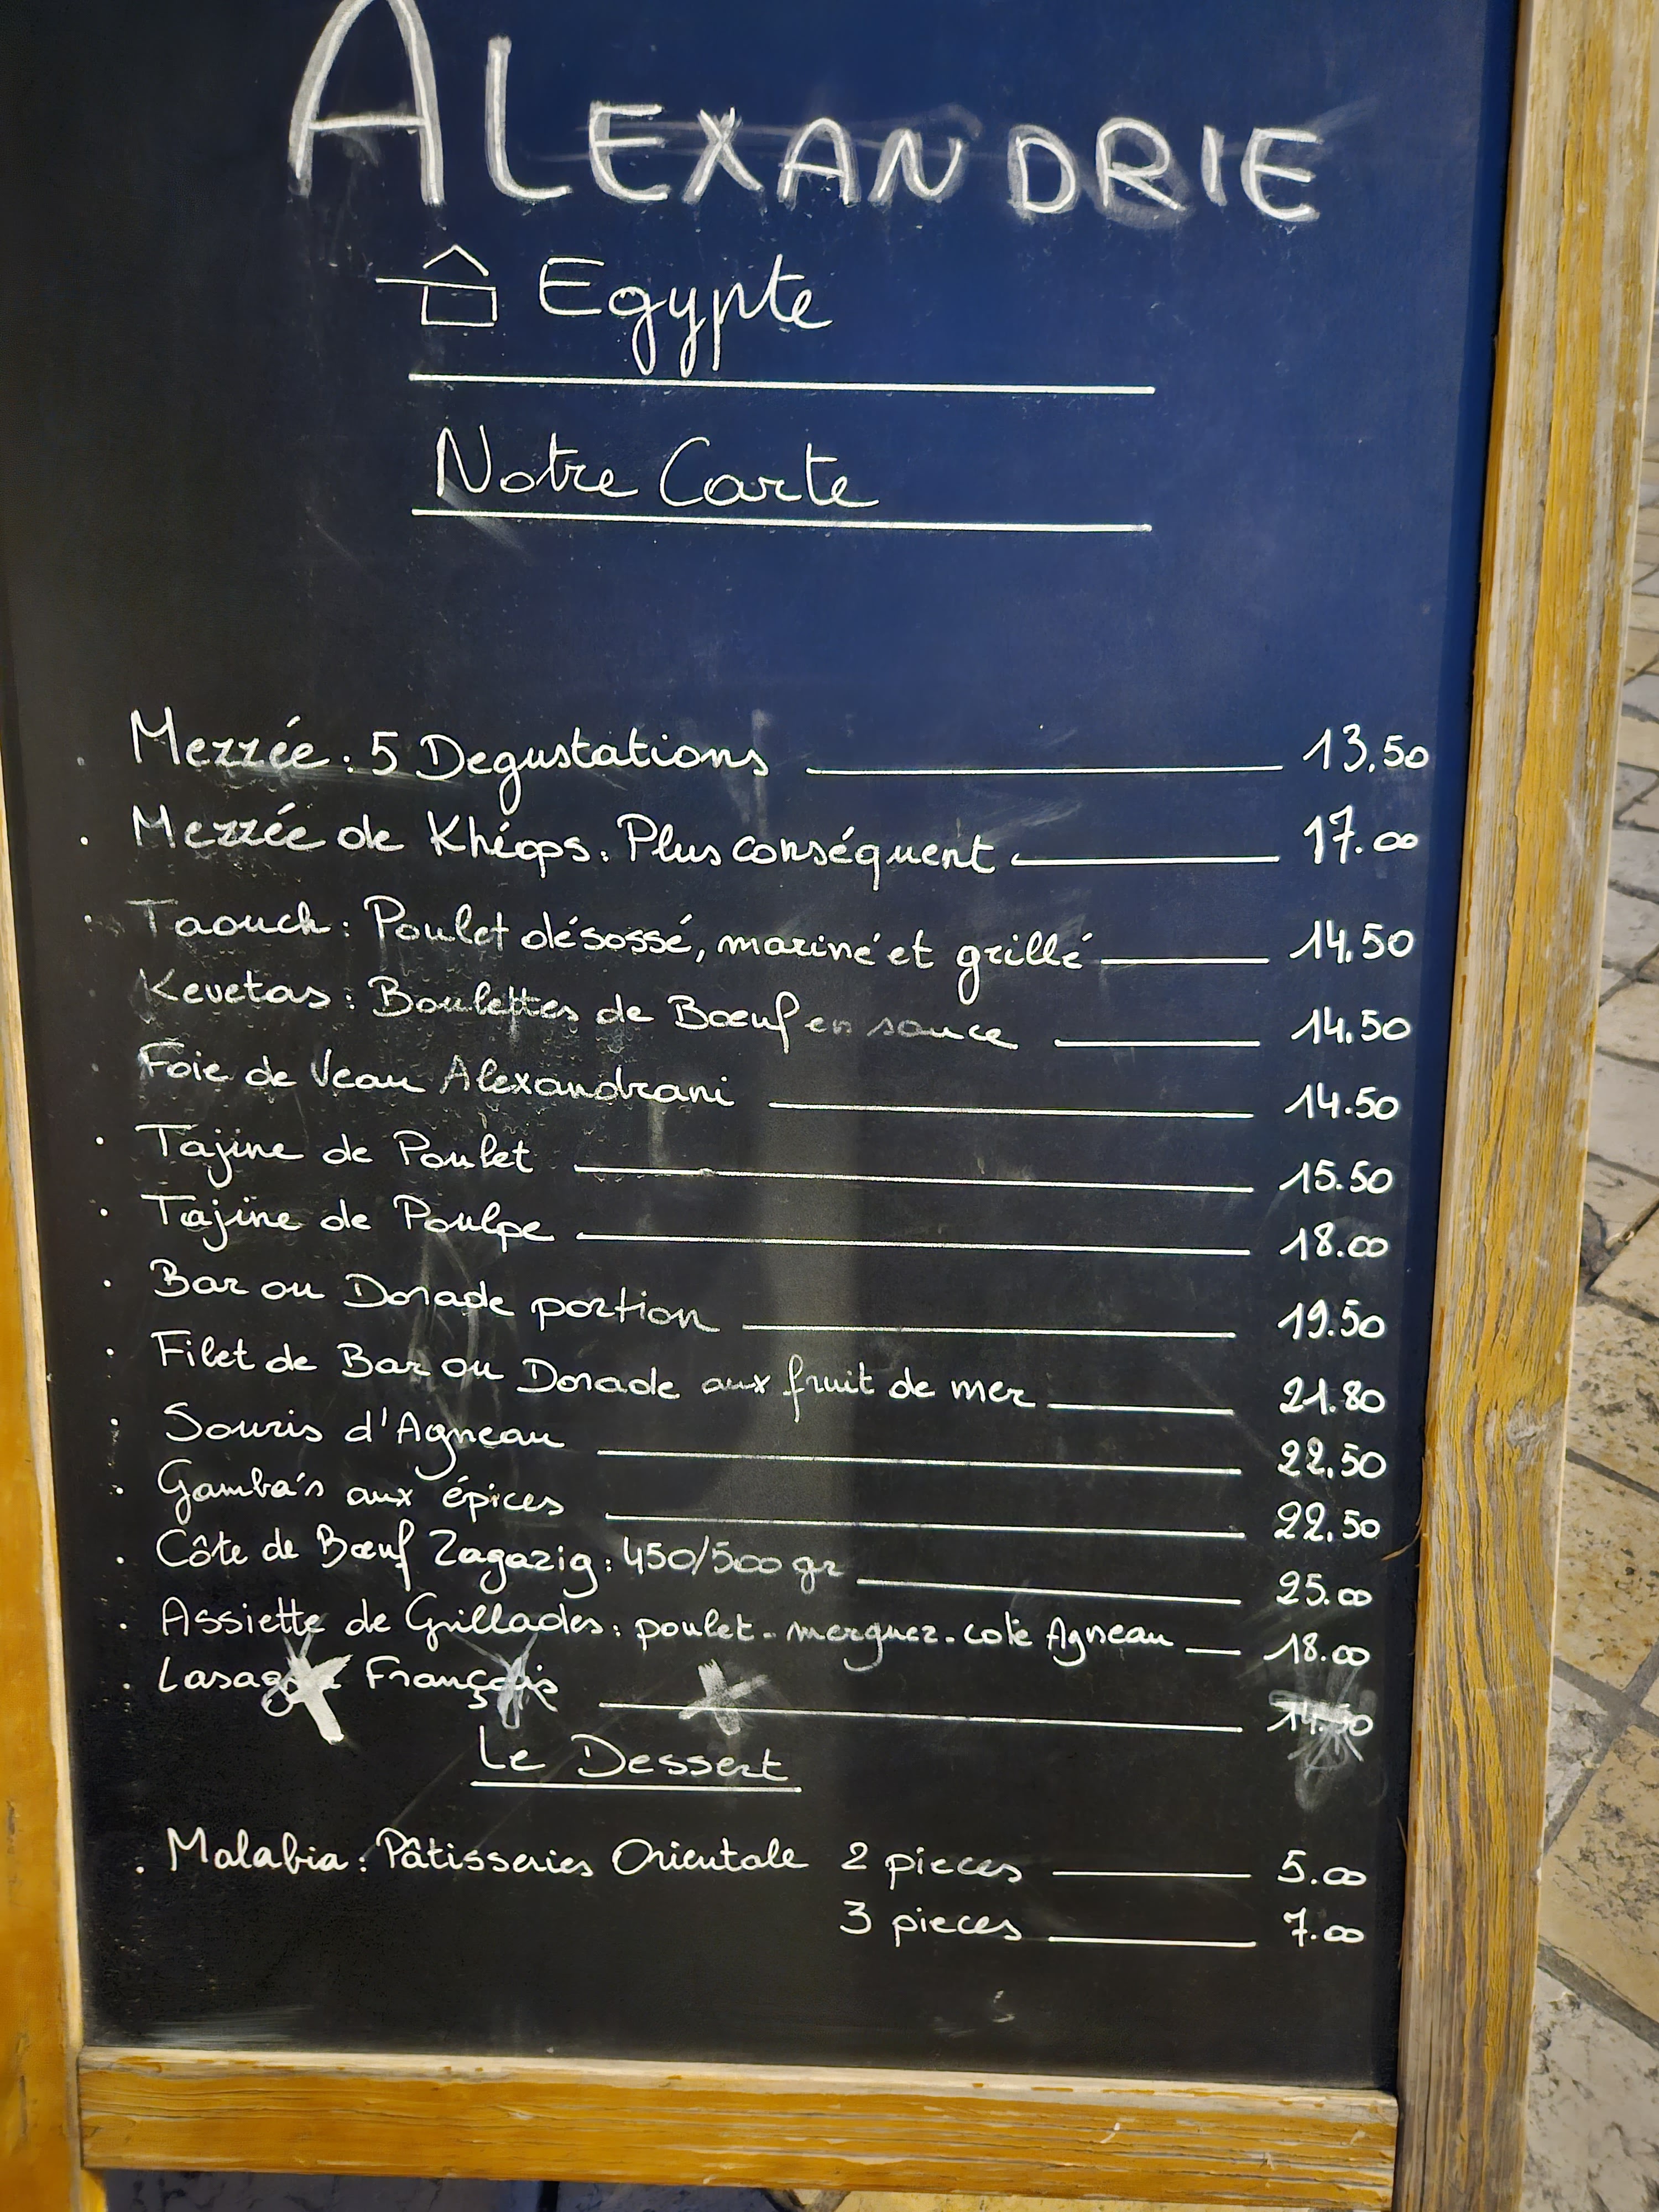 ALEXANDRIE
Egypte
Notre Carte
Mezzée : 5 Degustations 13.50
Mezzée de Khéops. Plus conséquent 17.00
Taouch : Poulet désossé, mariné et grillé 14.50
Kevetas : Boulettes de Bœuf en sauce 14.50
Foie de Veau Alexandrani 14.50
Tajine de Poulet 15.50
Tajine de Poulpe 18.00
Bar ou Dorade portion 19.50
Filet de Bar ou Dorade aux fruit de mer 21.80
Souris d'Agneau 22.50
Gamba's aux épices 22.50
Côte de Bœuf Zagazig : 450/500 gr 25.00
Assiette de Grillades : poulet - merguez - coté Agneau 18.00
Français 14.50
Le Dessert
Malabia : Pâtisseries Orientale 2 pieces 5.00
3 pieces 7.00